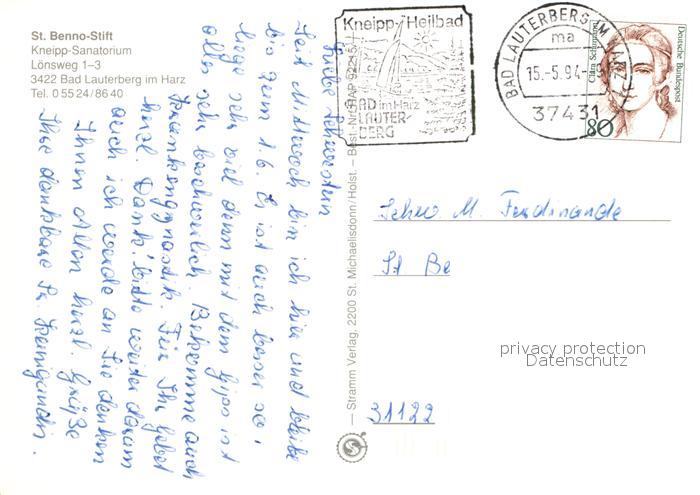 St. Benno-Stift
Kneipp-Sanatorium
Lönsweg 1–3
3422 Bad Lauterberg im Harz
Tel. 0 55 24 / 86 40
Liebe Schwestern
Seit Mittwoch bin ich hier und bleibe
bis zum 1.6. Es ist auch besser so,
liege sehr viel denn mit dem Gips ist
alles sehr beschwerlich. Bekomme auch
Krankengymnastik. Für Ihr Gebet
herzl. Dank! bitte weiter darum
auch ich werde an Sie denken
Ihnen Allen herzl. Grüße
Ihre dankbare
Kneipp-Heilbad
BAD im Harz
LAUTER-
BERG
BAD LAUTERBERG IM HARZ
ma
15.-5.94
37431
Clara Schumann
Deutsche Bundespost
80
— Stramm Verlag, 2200 St. Michaelisdonn/Holst. – Best.-Nr.
Schw. M. Ferdinande
St Be
31122
privacy protection
Datenschutz